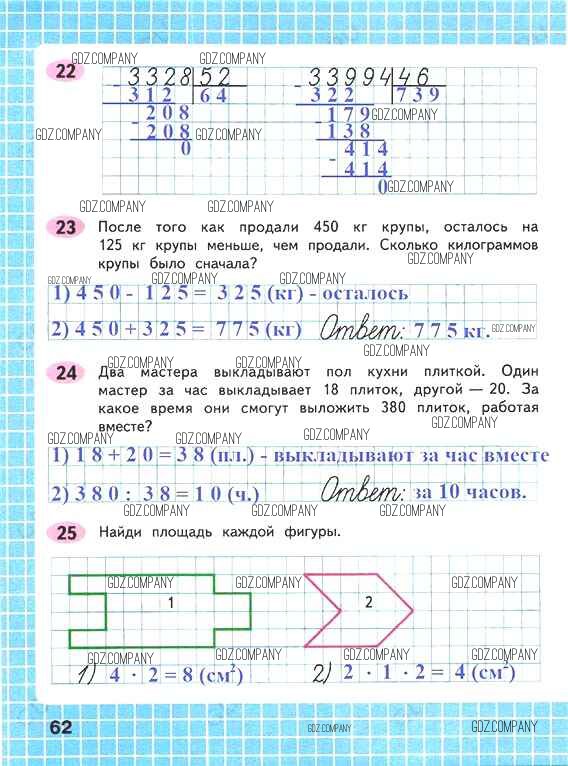 GDZ.COMPANY GDZ.COMPANY
22 3328 52 33994 46
- 312 64 - 322 739
208 - 179 GDZ.COMPANY
GDZ.COMPANY - 208 GDZ.COMPANY 138
0 - 414
414
0 GDZ.COMPANY
GDZ.COMPANY GDZ.COMPANY
23 После того как продали 450 кг крупы, осталось на
125 кг крупы меньше, чем продали. Сколько килограммов
крупы было сначала? GDZ.COMPANY
GDZ.COMPANY GDZ.COMPANY GDZ.COMPANY
1) 450 - 125 = 325 (кг) - осталось
2) 450 + 325 = 775 (кг) Ответ: 775 кг. GDZ.COMPANY
GDZ.COMPANY GDZ.COMPANY
24 Два мастера выкладывают пол кухни плиткой. Один
мастер за час выкладывает 18 плиток, другой — 20. За
какое время они смогут выложить 380 плиток, работая
вместе? GDZ.COMPANY
GDZ.COMPANY GDZ.COMPANY GDZ.COMPANY
1) 18 + 20 = 38 (пл.) - выкладывают за час вместе
2) 380 : 38 = 10 (ч.) Ответ: за 10 часов.
GDZ.COMPANY GDZ.COMPANY GDZ.COMPANY
25 Найди площадь каждой фигуры.
GDZ.COMPANY GDZ.COMPANY GDZ.COMPANY GDZ.COMPANY
1 2
GDZ.COMPANY GDZ.COMPANY GDZ.COMPANY
1) 4 · 2 = 8 (см²) 2) 2 · 1 · 2 = 4 (см²)
62 GDZ.COMPANY GDZ.COMPANY